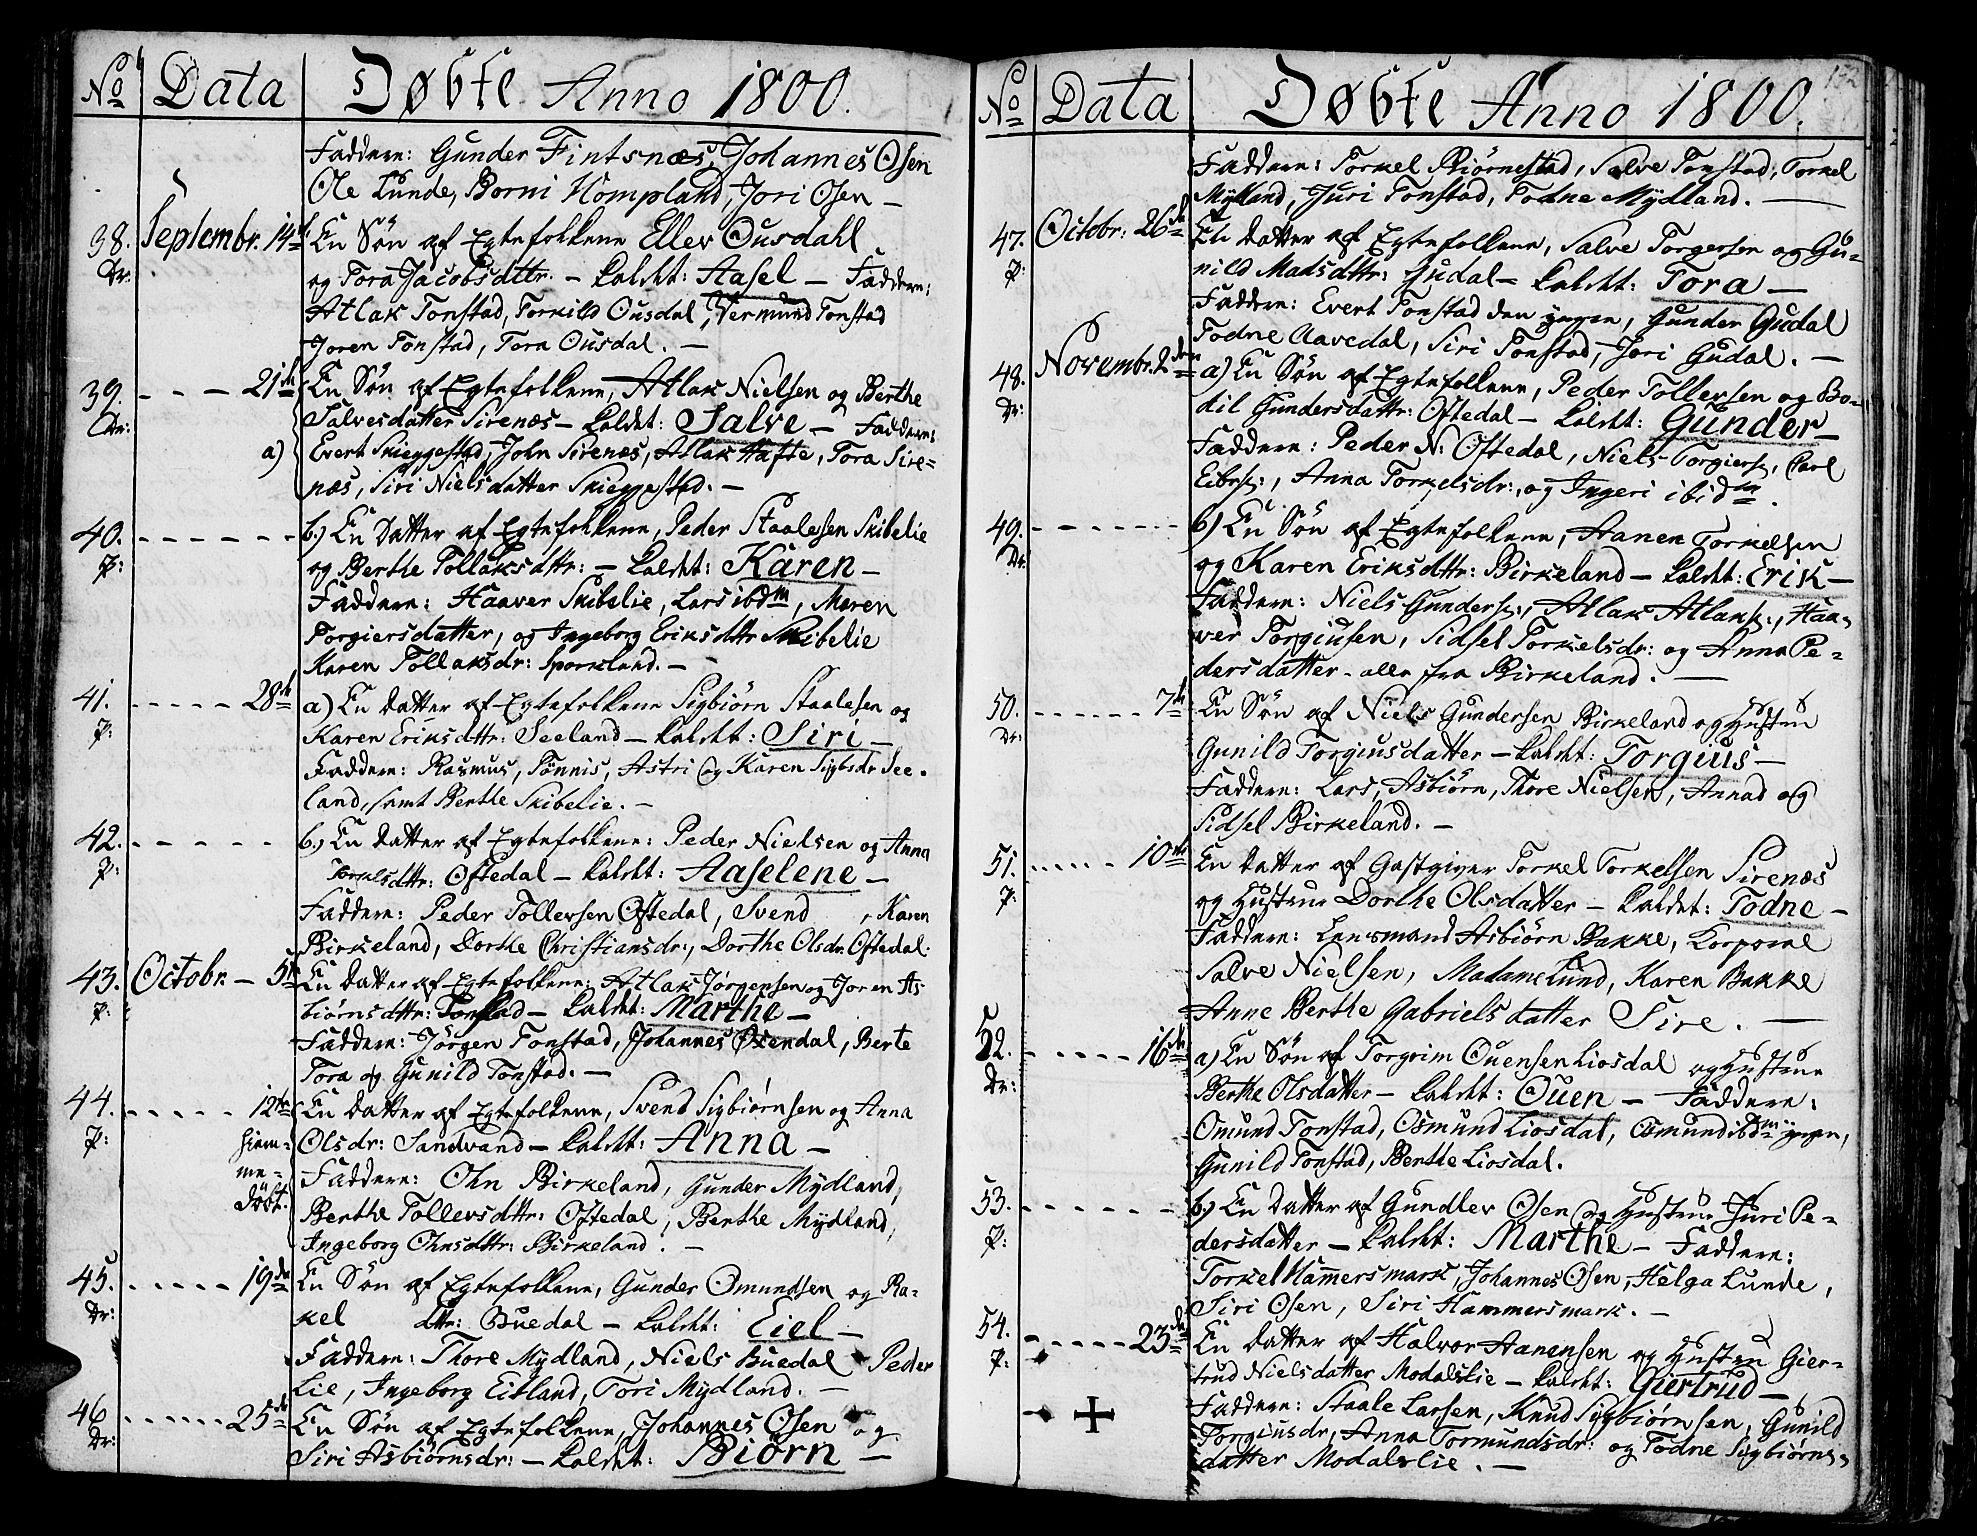 No Data Døbte Anno 1800.
Faddere: Gunder Fintsnæs, Johannes Osen
Ole Lunde, Borni Hompland, Jori Osen —
38. Septembr. 14de En Søn af Egtefolkene Eller Ousdahl
Dr: og Tora Jacobsdttr. — kaldet: Aasel — Faddere:
Atlak Tonstad, Torkild Ousdal, Vermund Tonstad
Joren Tonstad, Tora Ousdal. —
39. - - - 21de En Søn af Egtefolkene, Atlak Nielsen og Berthe
Dr: Salvesdatter Sirenæs — kaldet: Salve — Faddere:
a) Evert Skieggestad, John Sirenæs, Atlak Hafte, Tora Sire=
næs, Siri Nielsdatter Skieggestad. —
40. - - - - - - b.) En Datter af Egtefolkene, Peder Staalesen Skibelie
P: og Berthe Tollaksdttr: — kaldet: Karen —
Faddere: Haaver Skibelie, Lars ibdm, Maren
Torgiersdatter, og Ingeborg Eriksdttr Skibelie
Karen Tollaksdr: Sporkland. —
41. - - - - - 28de a) En Datter af Egtefolkene Sigbiørn Staalesen og
P: Karen Eriksdttr: Seeland — kaldet: Siri —
Faddere: Rasmus, Tønnis, Astri og Karen Sigbsdr See-
land, samt Berthe Skibelie. —
42. - - - - - - b.) En Datter af Egtefolkene: Peder Nielsen og Anna
P: Torkelsdttr: Oftedal — kaldet: Aaselene —
Faddere: Peder Tollevsen Oftedal, Svend , Karen
Birkeland, Dorthe Christiansdr:, Dorthe Olsdr. Oftedal.
43. Octobr. — 5te En Datter af Egtefolkene: Atlak Jørgensen og Joren As
P: biørnsdttr: Tonstad — kaldet: Marthe —
Faddere: Jørgen Tonstad, Johannes Øxendal, Berte
Tora og Gunild Tonstad. —
44. - - - - - 12te En Datter af Egtefolkene, Svend Sigbiørnsen og Anna
P: hiem= Olsdr: Sandvand — kaldet: Anna —
me= Faddere: Ohn Birkeland, Gunder Mydland,
døbt. Berthe Tollevsdttr: Oftedal, Berthe Mydland,
Ingeborg Ohnsdttr: Birkeland. —
45. - - - - - 19de En Søn af Egtefolkene, Gunder Omundsen og Ra-
Dr: kel dttr: Buedal — kaldet: Eiel —
Faddere: Thore Mydland, Niels Buedal Peder
Lie, Ingeborg Eitland, Tori Mydland. —
46 - - - - - - 25de En Søn af Egtefolkene, Johannes Osen og
Dr: Siri Asbiørnsdr: — kaldet: Biørn —
No Data Døbte Anno 1800. 152
Faddere: Torkel Biørnestad, Salve Tonstad, Torkel
Mydland, Juri Tonstad, Todne Mydland. —
47. Octobr: 26de En Datter af Egtefolkene, Salve Torgersen og Gu-
P: nild Madsdttr: Gudal — kaldet: Tora —
Faddere: Evert Tonstad den yngre, Gunder Gudal
Todne Aavedal, Siri Tonstad, Jori Gudal. —
48. Novembr. 2den a) En Søn af Egtefolkene, Peder Tollevsen og Bo-
Dr: dil Gundersdattr: Oftedal — kaldet: Gunder —
Faddere: Peder N: Oftedal, Niels Torgiers:, Carl
Eibrs:, Anna Torkelsdr:, og Ingeri ibidm.
49. - - - - - - b) En Søn af Egtefolkene, Aanen Torkelsen
Dr: og Karen Eriksdttr: Birkeland — kaldet: Erik —
Faddere: Niels Gunders:, Atlak Atlaks:, Haa-
ver Torgiusen, Sidsel Torkelsdr: og Anna Pe-
dersdatter - alle fra Birkeland. —
50. - - - - - - 7de En Søn af Niels Gundersen Birkeland og Hustru
Dr: Gunild Torgiusdatter — kaldet: Torgius —
Faddere: Lars, Asbiørn, Thore Nielsen, Annad og
Sidsel Birkeland. —
51. - - - - - 10de En Datter af Gastgiver Torkel Torkelsen Sirenæs
P: og Hustrue Dorthe Olsdatter — kaldet: Todne —
Faddere: Lensmand Asbiørn Bakke, Corporal
Salve Nielsen, Madame Lund, Karen Bakke
Anne Berthe Gabrielsdatter Sire. —
52. - - - - - 16de a) En Søn af Torgrim Ouensen Liosdal og Hustrue
Dr: Berthe Olsdatter — kaldet: Ouen — Faddere:
Omund Tonstad, Osmund Liosdal, Osmund ibdm yngre,
Gunild Tonstad, Berthe Liosdal.
53. - - - - - - b.) En Datter af Gundlev Osen og Hustrue Juri Pe-
P: dersdatter — kaldet: Marthe — Faddere:
Torkel Hammersmark, Johannes Osen, Helga Lunde,
Siri Osen, Siri Hammersmark. —
54. - - - - - 23de En Datter af Halvor Aanensen og Hustru Gier-
P: trud Nielsdatter Modalslie — kaldet: Giertrud —
+ Faddere: Staale Larsen, Knud Sigbiørnsen, Gunild
Torgiusdr, Anna Tormundsdr: og Todne Sigbiørns-
datter Modalslie. —